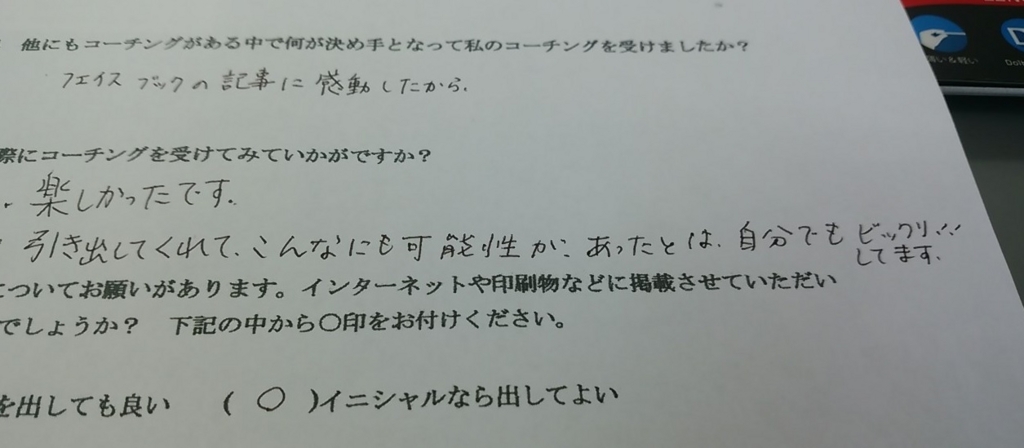 他にもコーチングがある中で何が決め手となって私のコーチングを受けましたか？
フェイスブックの記事に感動したから。
際にコーチングを受けてみていかがですか？
・楽しかったです。
引き出してくれて、こんなにも可能性が、あったとは、自分でもビックリ!!
してます。
についてお願いがあります。インターネットや印刷物などに掲載させていただい
でしょうか？　下記の中から〇印をお付けください。
を出しても良い　（　〇　）イニシャルなら出してよい